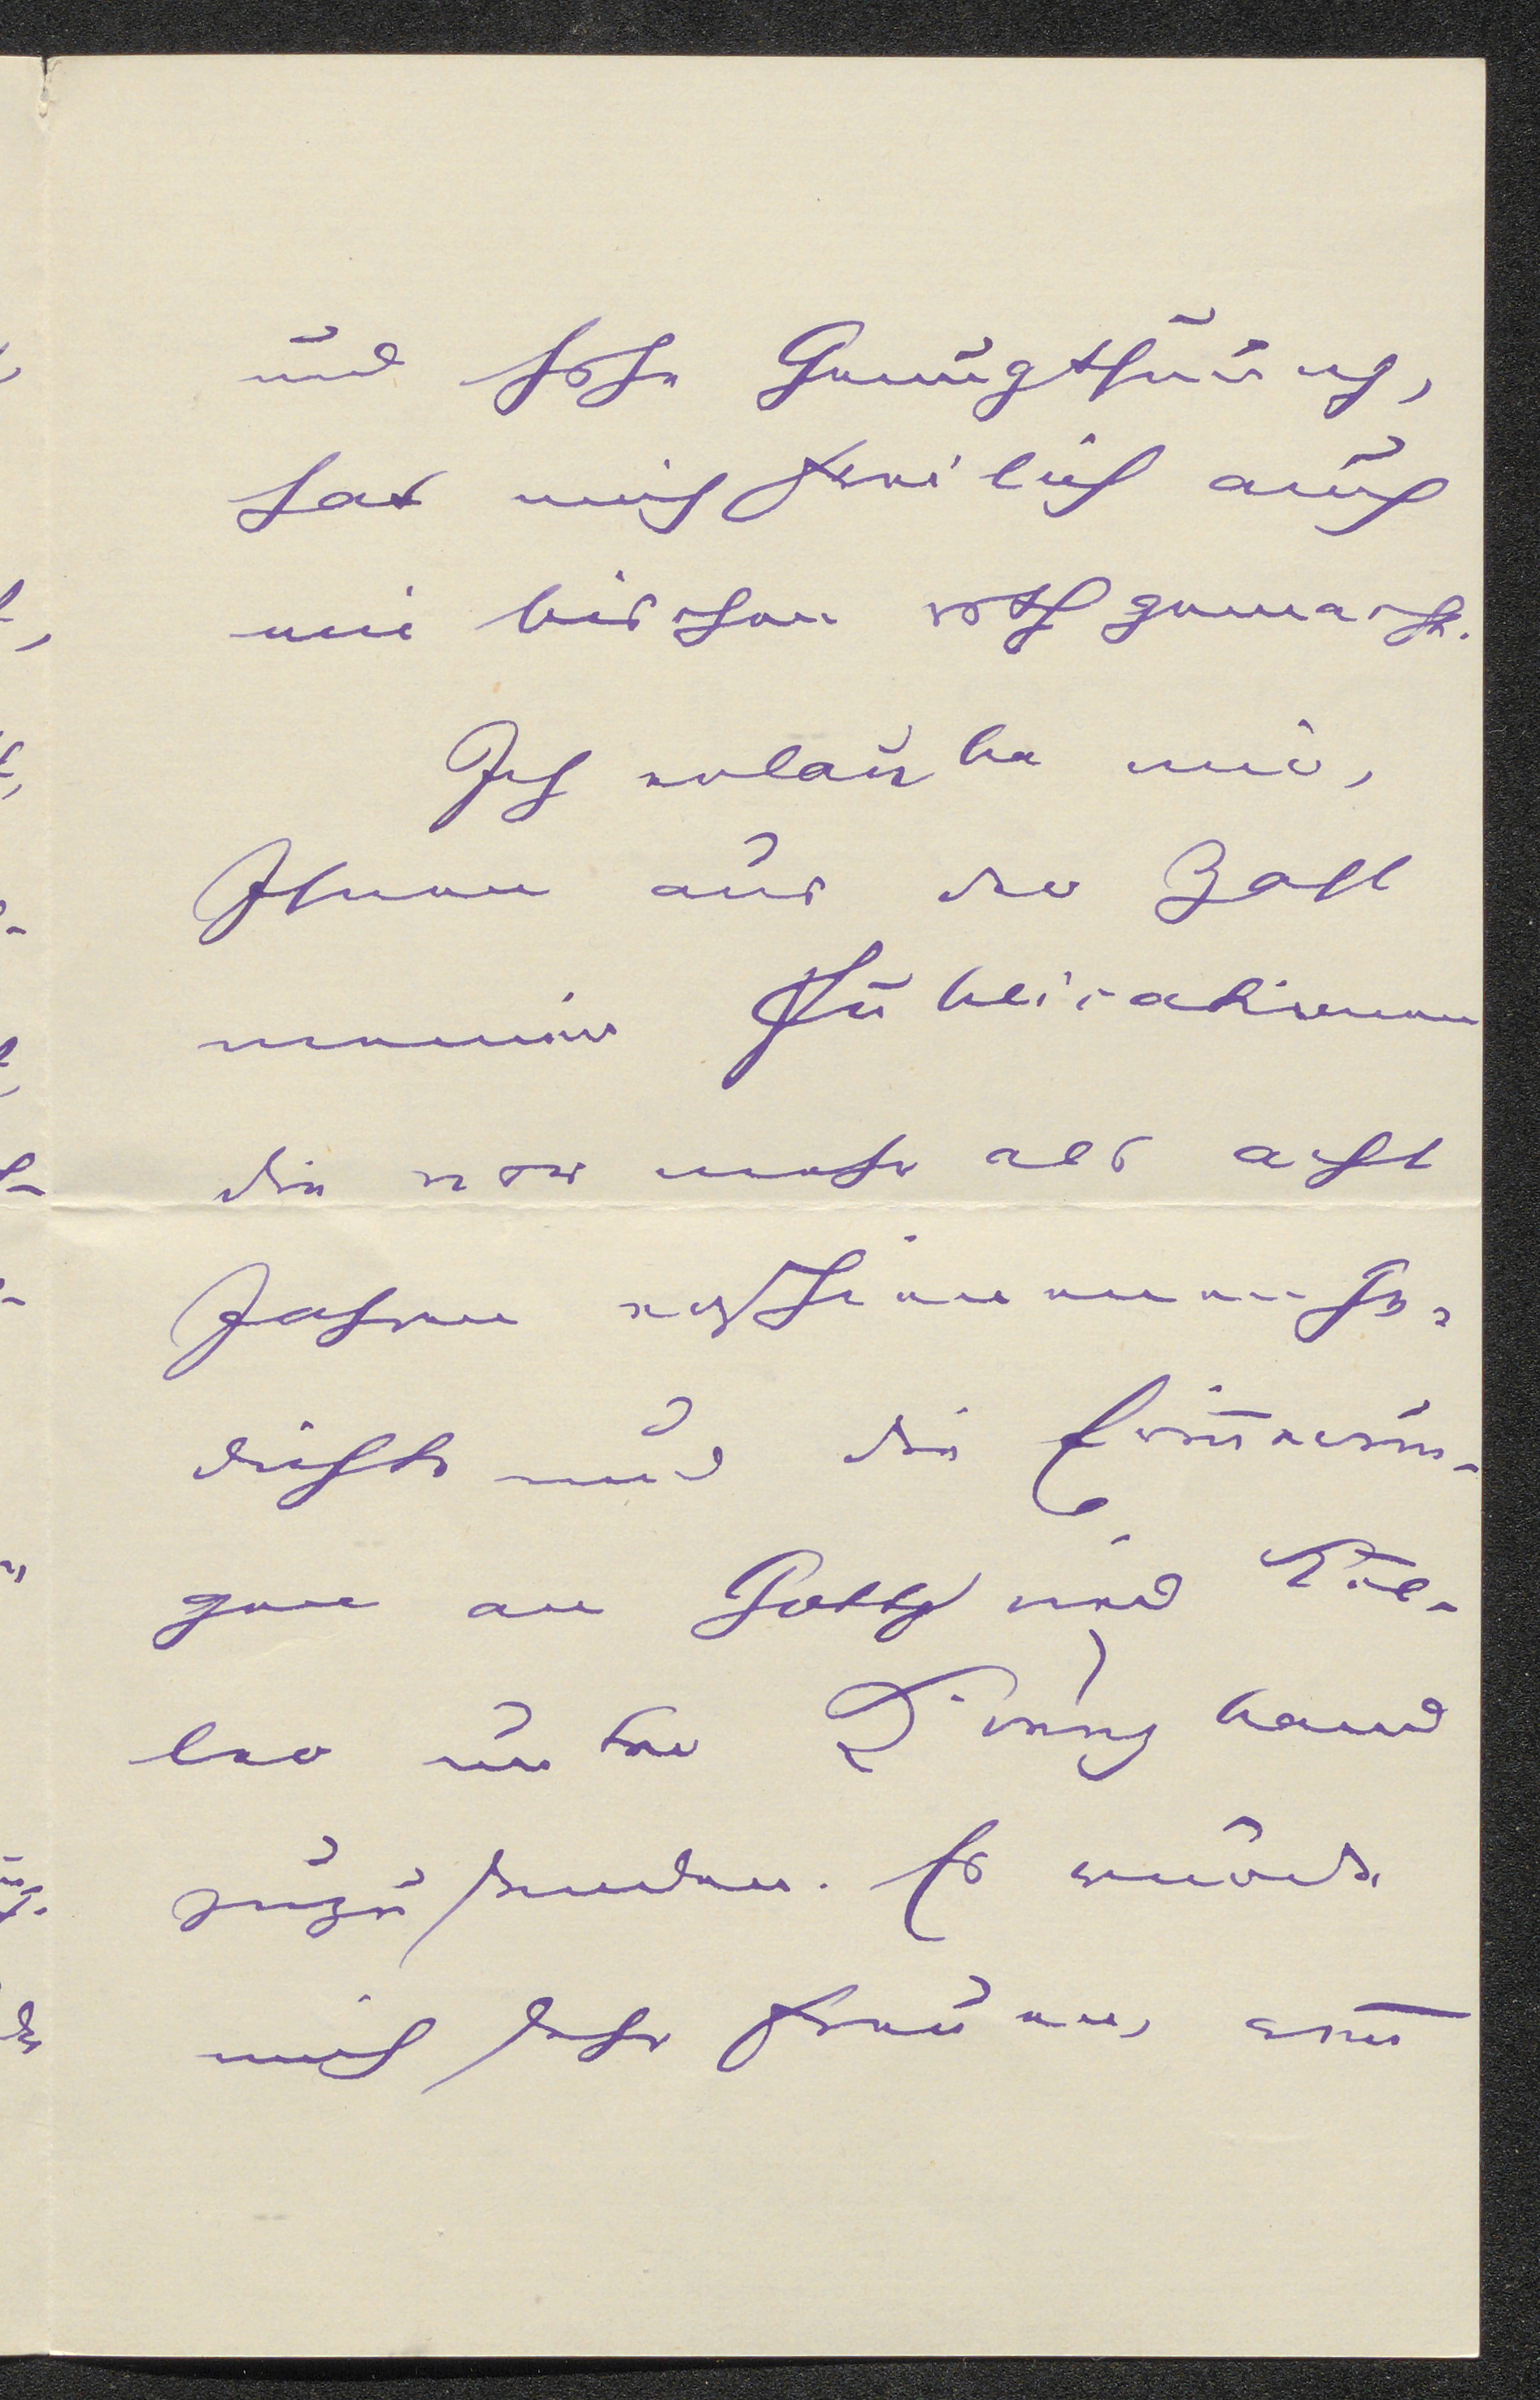 und hohe Genugthuung,
hat mich freilich auch
ein bischen roth gemacht.
Ich erlaube mir,
Ihnen aus der Zahl
meiner Publicationen
die vor mehr als acht
Jahren erschienenen Ge-
dichte und die Erinnerun-
gen an und
ler unter band
zuzusenden. Es würde
mich sehr freuen, wenn